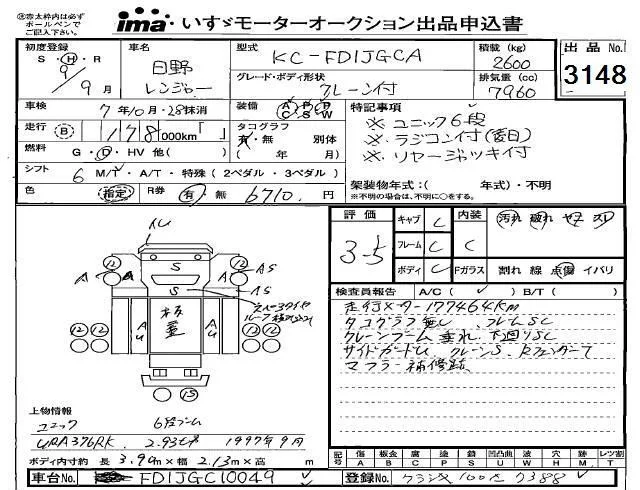 ima いすゞモーターオークション出品申込書
初度登録 S・H・R 9年 9月
車名 日野 レンジャー
型式 KC-FD1JGCA
グレード・ボディ形状 クレーン付
積載(kg) 2600
排気量(cc) 7960
出品No. 3148
車検 7年10月・28抹消
装備 A P P C S W
特記事項
※ ユニック6段
※ ラジコン付(変日)
※ リヤージャッキ付
走行 B 178,000km
タコグラフ 有・無 別体 (年 月)
燃料 G・D・HV 他( )
シフト 6 M/T・A/T・特殊(2ペダル・3ペダル)
架装物年式:( 年式)・不明
※不明の場合は、不明に○をする。
色 指定 R券 有・無 6710 円
評価 3.5
キャブ C 内装 汚れ 破れ
フレーム C C
ボディ C Fガラス 割れ 線 点傷 イバリ
検査員報告 A/C( ✓ ) B/T( )
走行メーター177464Km
タコグラフ無し フレームSC
クレーンブーム垂れ 下廻りSC
サイドガードU クレーンS RフェンダーT
マフラー補修跡
12 12
A S A S
S A S
A A
板 AU AU
12 12
15
上物情報
ユニック 6段ブーム
URA376RK 2.93t 1997年9月
ボディ内寸約 長 3.99m×幅 2.13m×高 m
記号 傷 A 板金 B 腐 C 塗 P 錆 S 凹凸曲 U 波 W 穴 H 跡 M レツ割 T
車台No. FD1JGC10049
登録No.